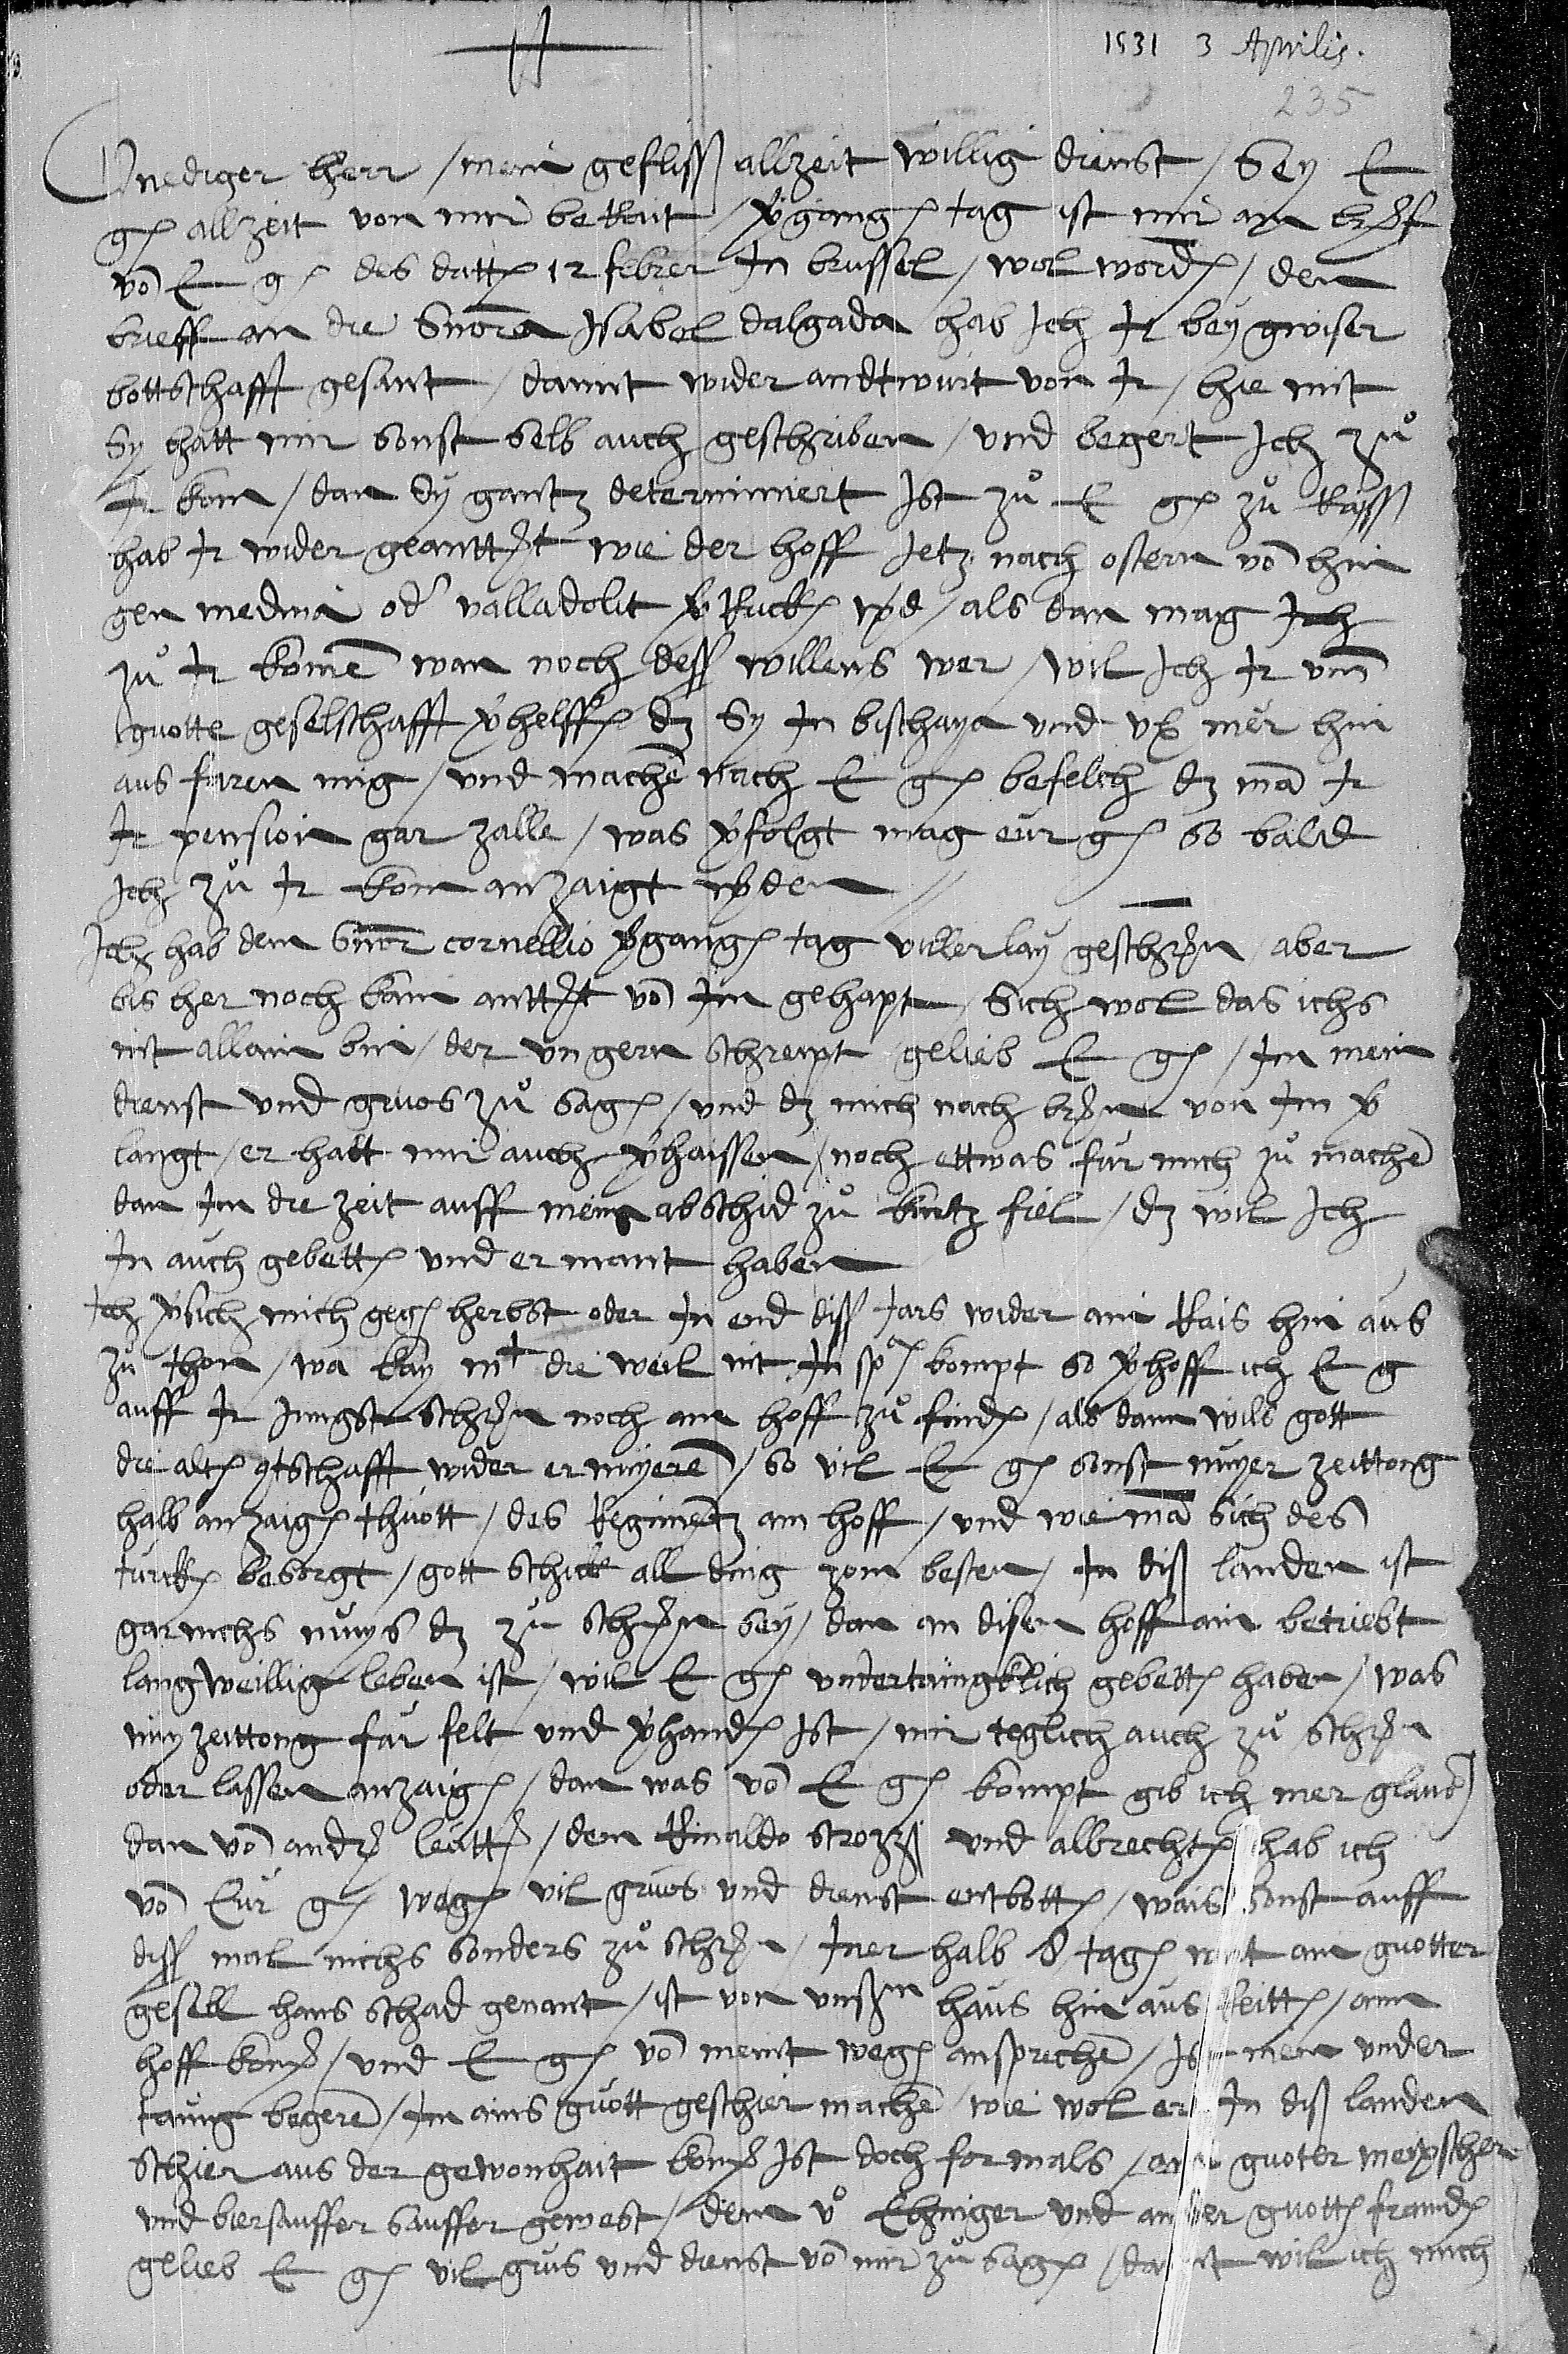 1531 3 Aprilis.
235
Gnediger herr / mein gefliss allzeit willig dienst / Sey E
g allzeit von mir berait / vgang tag ist mir ain brief
vo E g des datt 12 febrer In brussel / wol word / den
brieff an die Snora Isabel dalgada hab Ich Ir bey gwiser
bottschafft gesant / damit wider andtwurt von Ir / hie mit
Sy hatt mir sonst selb auch geschriben / und begert Ich zu
Ir kom / dan Sy gantz determiniert Ist zu E g zu Raiss
hab Ir wider geanttwrt wie der hoff Jetz nach ostern vo hin
gen medina od valladolit v Ruck wrd / als dan mag Ich
zu Ir kome wan noch dess willens wer / wil Ich Ir um
guotte geselschafft vhelff dz Sy In bischaya und ub mer hin
aus faren mig / und mache nach E g befelch dz ma Ir
Ir pension gar zalle / was vfolgt mag eur g so bald
Ich zu Ir kom anzaigt werden
Ich hab dem Snor cornellio vgang tag villerlay geschrn / aber
bis her noch kain anttwrt vo Im gehapt / Sich wol das ichs
nit allain bin / der ungern schreipt / gelieb E g / Im mein
dienst und gruos zu sag / und dz mich nach brn von Im v
langt / er hatt mir auch vhaissen / noch ettwas fur mich zu mache
dan Im die zeit auff mein abschid zu kurtz fiel / dz wil Ich
In auch gebett und ermant haben
Ich vsich mich geg herbst oder In end diss Jars wider ain Rais hin aus
zu thon / wa kay mt die weil nit In spa kompt so vhoff ich E g
auff Ir Jungst schrn noch am hoff zu find / als dann wils gott
die alt schafft wider ernuyere / so vil E g sonst nuyer zeittong
halb anzaig thuott / des Regimentz am hoff / und wie ma sich des
turck besorgt / gott schick all ding zom besten / In diss landen ist
gar nichs nuys dz zu schrn sey / dan an disem hoff ain betriebt
langweillig leben ist / wil E g undertaingklich gebett haben / was
nuy zeittong fur felt und vhand Ist / mir teglich auch zu schrn
oder lassen anzaig / dan was vo E g kompt gib ich mer glaub
dan vo andr leutt / dem Rinaldo strozzi und albrecht hab ich
vo Eur g weg vil gruos und dienst entbott / wais sonst auff
diss mal nichs sonders zu schrn / Iner halb 8 tag wirt ain guotter
gesell hans schad genant / ist von unsrm haus hin aus Reitt / am
hoff kom / und E g vo meint weg anspreche / Ist mein under
taing begere / Im ains guott geschier mache / wie wol er In diss landen
schier aus der gewonhait kom Ist doch formals / ain guoter
und biersauffer sauffer gewest / dem u Ehinger und ander guott fraind
gelieb E g vil grus und dienst vo mir zu sag / damit wil ich mich